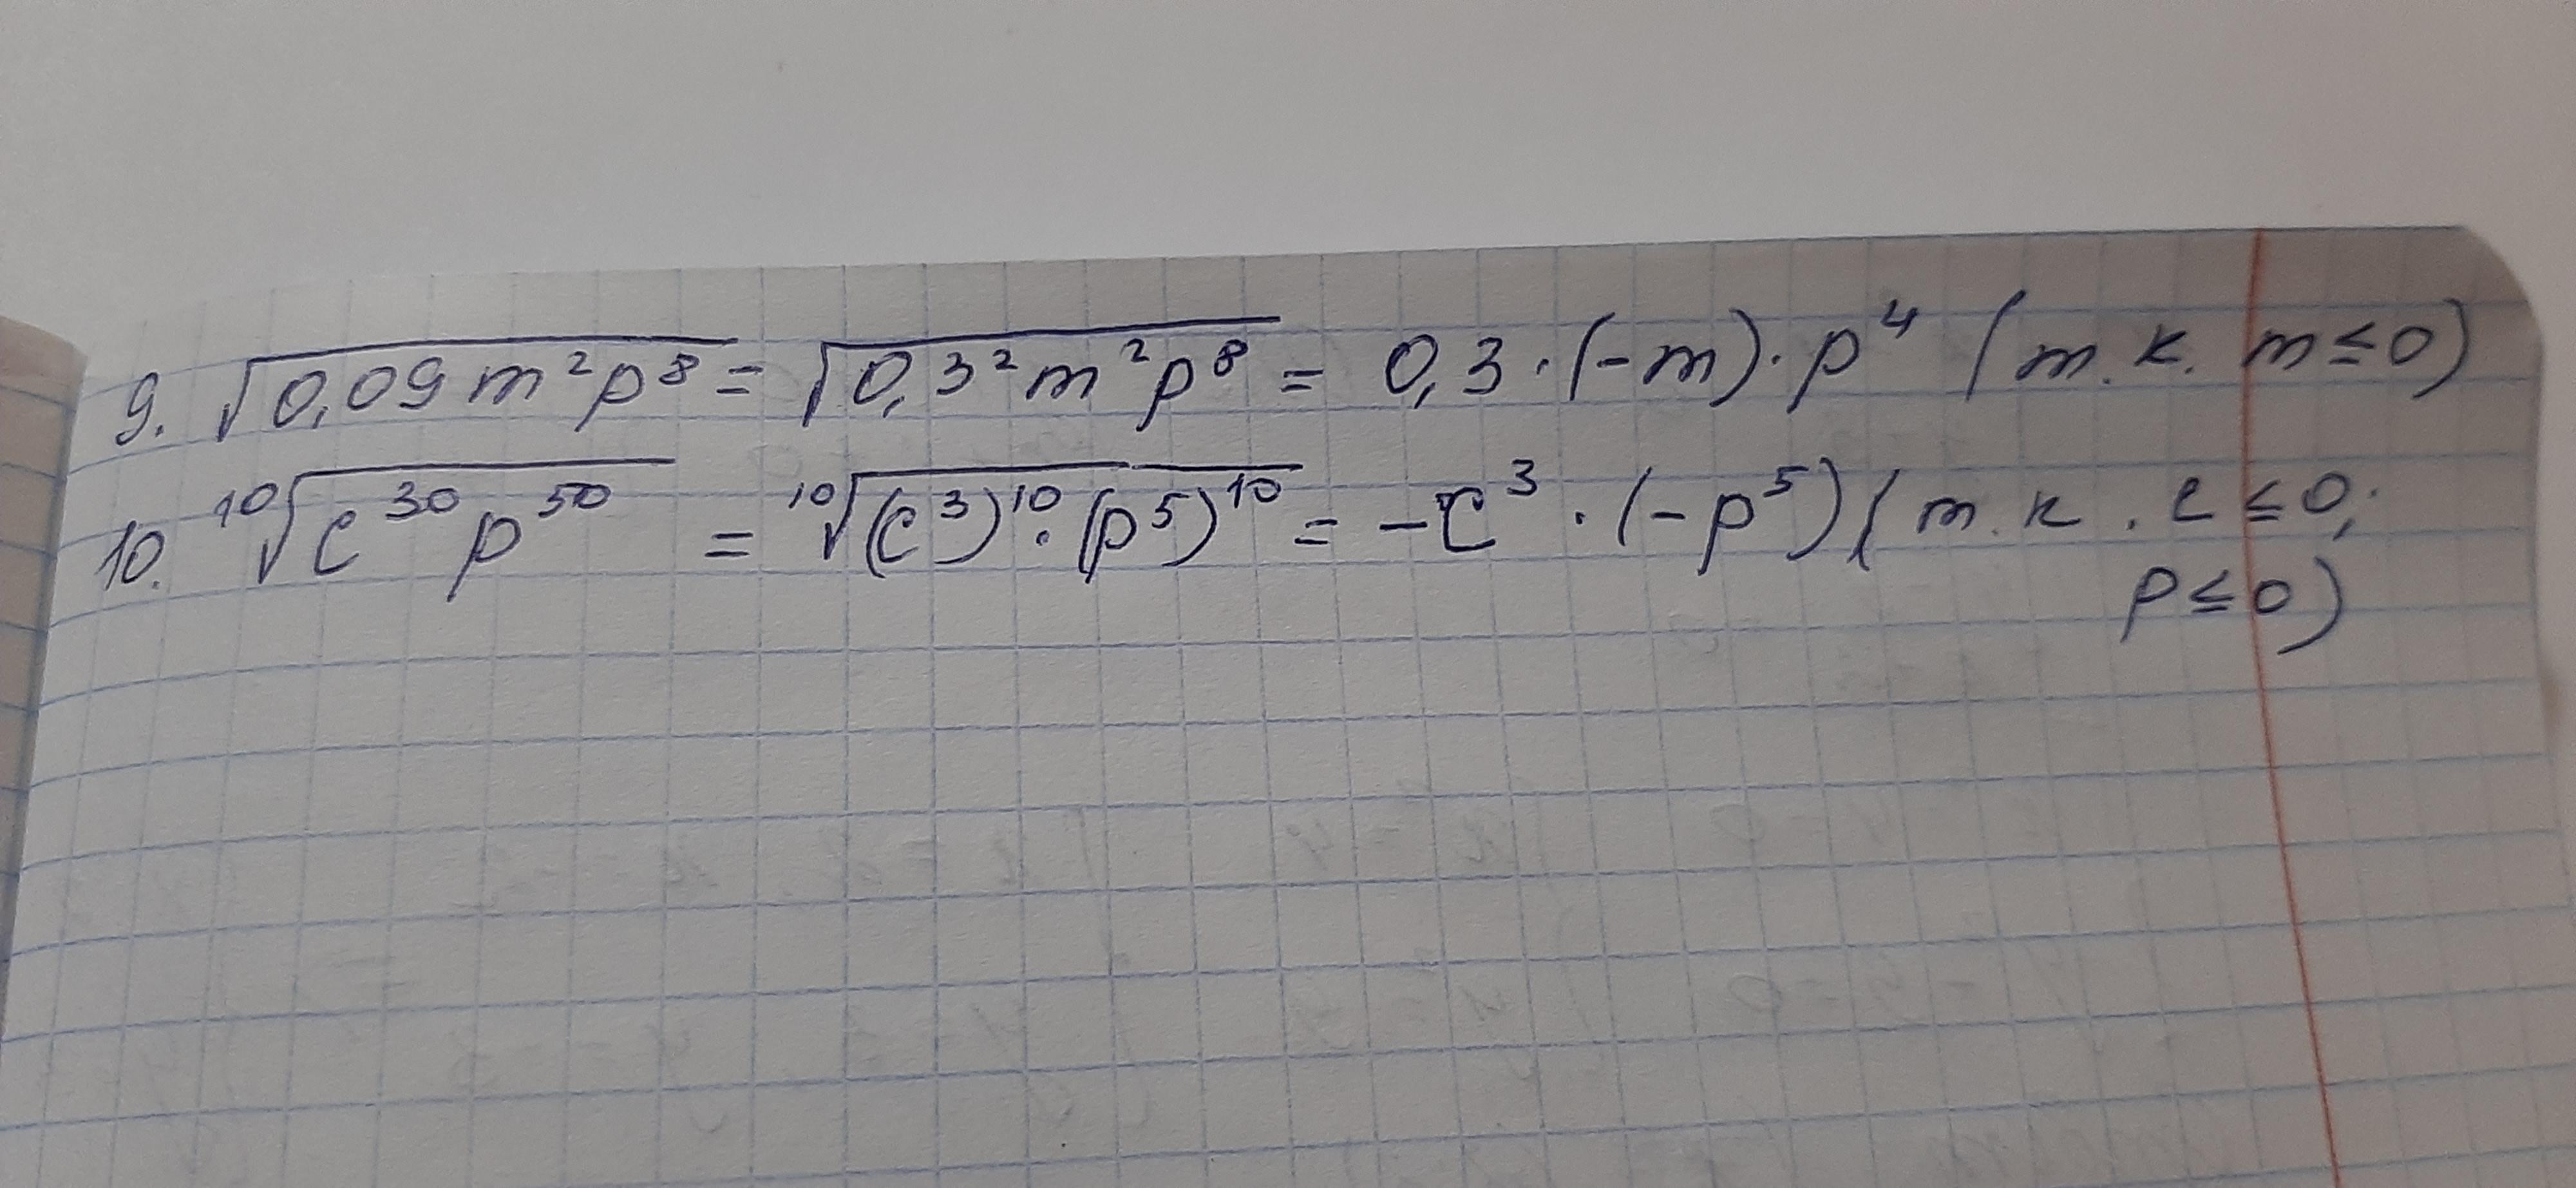 9. √0,09m²p⁸ = √0,3²m²p⁸ = 0,3·(-m)·p⁴ (т.к. m≤0)
10. ¹⁰√c³⁰p⁵⁰ = ¹⁰√(c³)¹⁰·(p⁵)¹⁰ = -c³·(-p⁵) (т.к. c≤0;
p≤0)